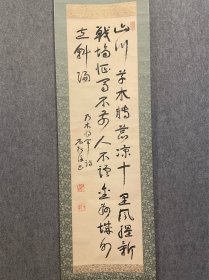 山川草木轉荒涼十里風腥新
戰場征馬不前人不語金州城外
立斜陽
乃木將軍詩